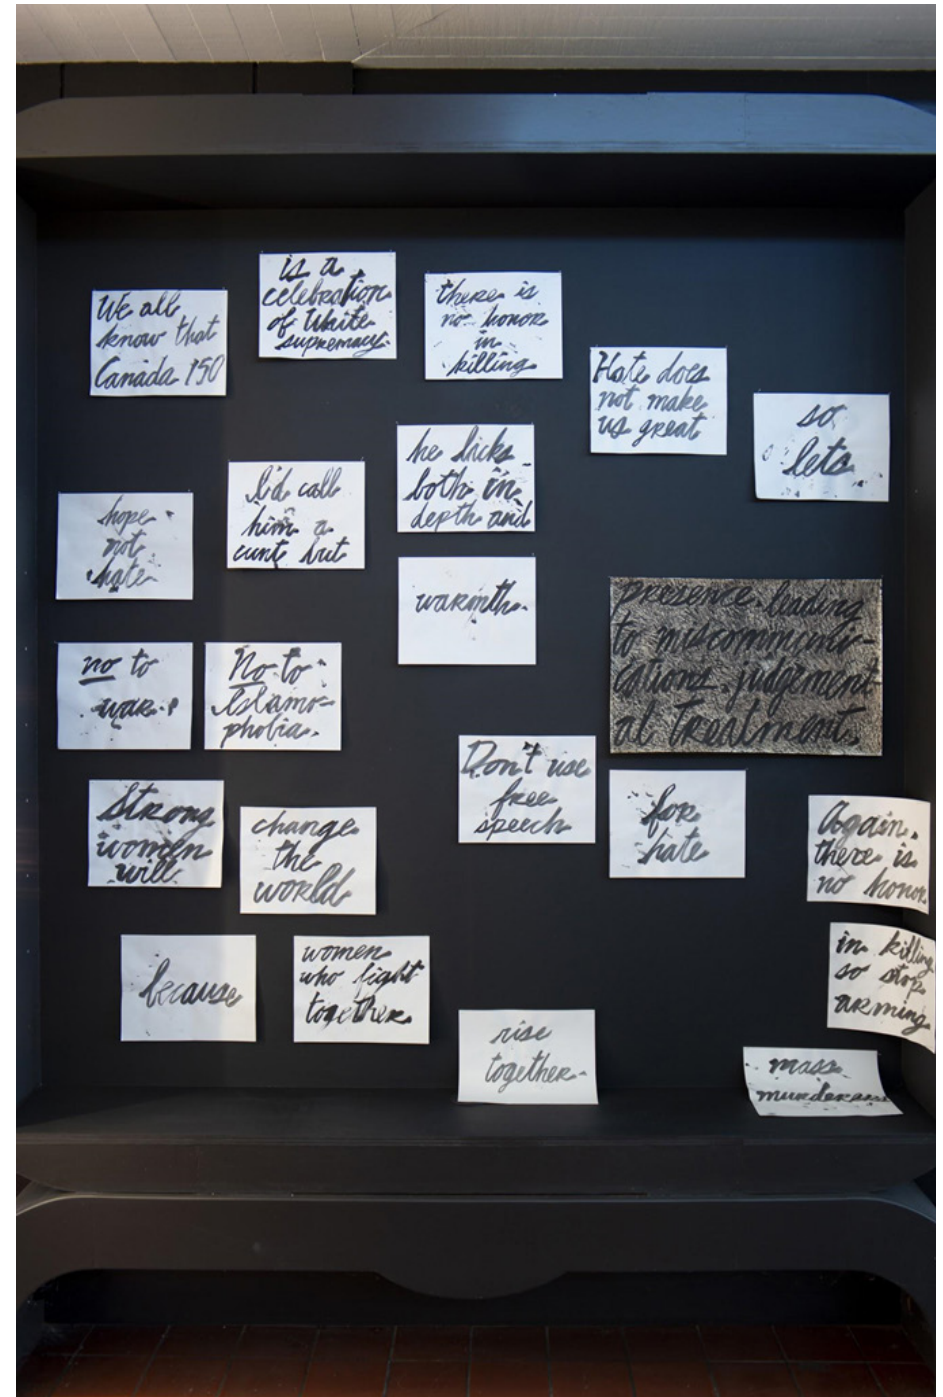 We all
know that
Canada 150
is a
celebration
of White
supremacy.
there is
no honor
in
killing
Hate does
not make
us great
so
lets
hope
not
hate
I'd call
him a
cunt but
he licks
both in
depth and
warmth.
presence leading
to miscommuni-
cations, judgement
al treatment.
no to
war.
No to
Islamo-
phobia.
Don't use
free
speech
for
hate
Strong
women
will
change
the
world
Again.
there is
no honor
in killing
so stop
arming
because
women
who fight
together
rise
together.
mass
murderers